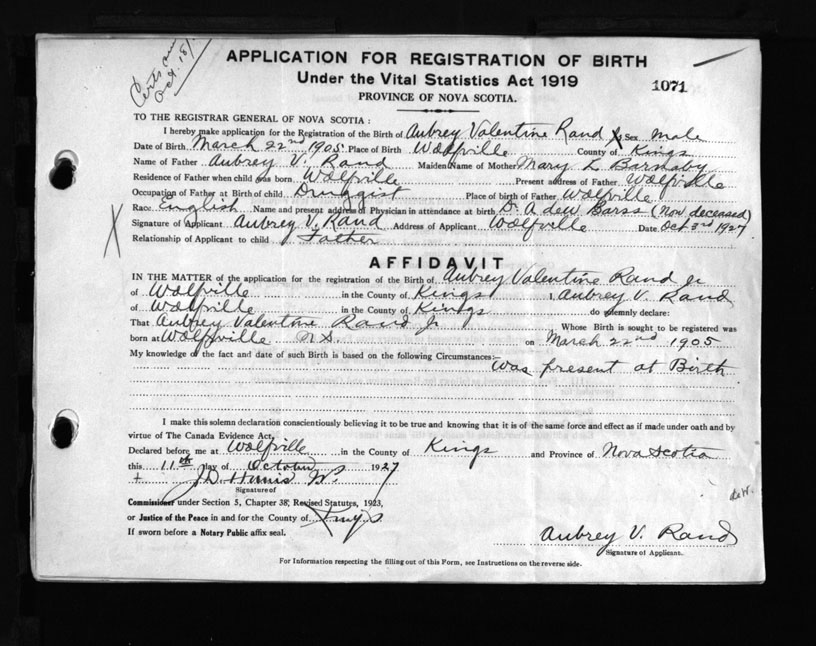 Certs
Oct. 18/
APPLICATION FOR REGISTRATION OF BIRTH
Under the Vital Statistics Act 1919
1071
PROVINCE OF NOVA SCOTIA.
TO THE REGISTRAR GENERAL OF NOVA SCOTIA :
I hereby make application for the Registration of the Birth of Aubrey Valentine Rand Jr Sex male
Date of Birth March 22nd 1905 Place of Birth Wolfville County of Kings
Name of Father Aubrey V. Rand Maiden Name of Mother Mary L Barnaby
Residence of Father when child was born Wolfville Present address of Father Wolfville
Occupation of Father at Birth of child Druggist Place of birth of Father Wolfville
Race English Name and present address of Physician in attendance at birth Dr. A deW Barss (Now deceased)
Signature of Applicant Aubrey V. Rand Address of Applicant Wolfville Date Oct 3rd 1927
Relationship of Applicant to child Father
AFFIDAVIT
IN THE MATTER of the application for the registration of the Birth of Aubrey Valentine Rand Jr
of Wolfville in the County of Kings I, Aubrey V. Rand
of Wolfville in the County of Kings do solemnly declare:
That Aubrey Valentine Rand Jr Whose Birth is sought to be registered was
born at Wolfville N.S. on March 22nd 1905
My knowledge of the fact and date of such Birth is based on the following Circumstances:-
was present at Birth
I make this solemn declaration conscientiously believing it to be true and knowing that it is of the same force and effect as if made under oath and by
virtue of The Canada Evidence Act.
Declared before me at Wolfville in the County of Kings and Province of Nova Scotia
this 11th day of October 1927
Signature of
Commissioner under Section 5, Chapter 38, Revised Statutes, 1923,
or Justice of the Peace in and for the County of Kings
If sworn before a Notary Public affix seal.
Aubrey V. Rand
Signature of Applicant.
For Information respecting the filling out of this Form, see Instructions on the reverse side.